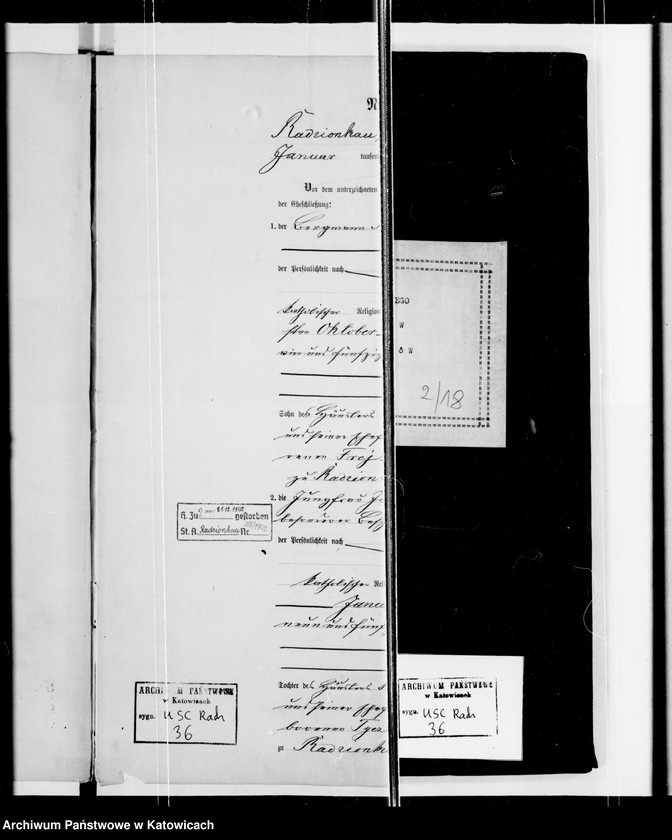 Radzionkau
Januar tausen
Vor dem unterzeichneten
der Eheschließung:
1. der Bergmann
der Persönlichkeit nach
katholischer Religion
sten Oktober
vier und fünfzig
Sohn des Häuslers
und seiner Ehef
renen Trej
zu Radzion
2. die Jungfrau Jo
der Persönlichkeit nach
katholischer Reli
Janu
neun und fünf
Tochter des Häuslers
und seiner Ehe
borenen
zu Radzionk
H. Zu 2 am gestorben
St. A. Radzionkau Nr.
ARCHIWUM PAŃSTWOWE
w Katowicach
sygn. USC Radz
36
EGO
W
ÓW
2/18
ARCHIWUM PAŃSTWOWE
w Katowicach
sygn. USC Radz
36
Archiwum Państwowe w Katowicach